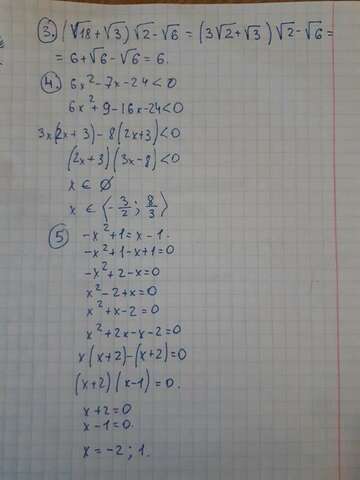 3. (√18 + √3) √2 - √6 = (3√2 + √3) √2 - √6 =
= 6 + √6 - √6 = 6.
4. 6x² - 7x - 24 < 0
6x² + 9 - 16x - 24 < 0
3x(2x + 3) - 8(2x + 3) < 0
(2x + 3)(3x - 8) < 0
x ∈ ∅
x ∈ ⟨-3/2; 8/3⟩
5 -x² + 1 = x - 1.
-x² + 1 - x + 1 = 0
-x² + 2 - x = 0
x² - 2 + x = 0
x² + x - 2 = 0
x² + 2x - x - 2 = 0
x(x + 2) - (x + 2) = 0
(x + 2)(x - 1) = 0.
x + 2 = 0
x - 1 = 0.
x = -2; 1.